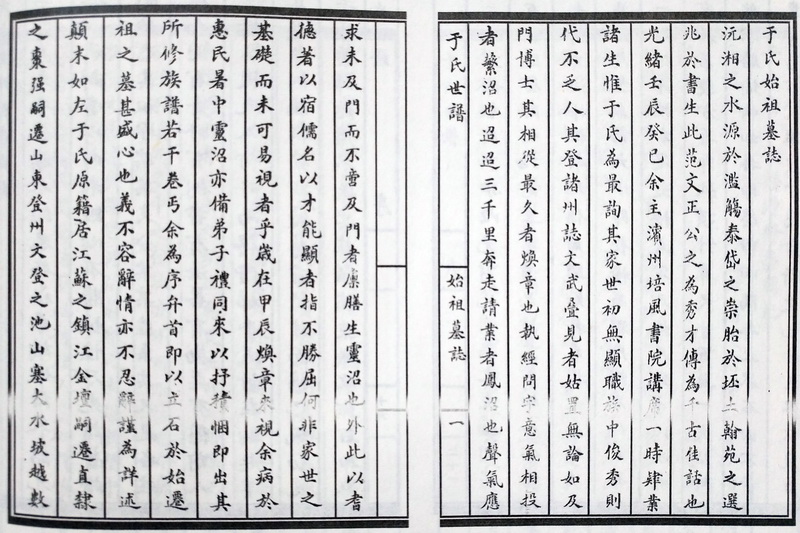 于氏始祖墓誌
沅湘之水源於濫觴泰岱之崇胎於坯土翰苑之選
兆於書生此范文正公之為秀才傳為千古佳話也
光緒壬辰癸巳余主濱州培風書院講席一時肄業
諸生惟于氏為最詢其家世初無顯職族中俊秀則
代不乏人其登諸州誌文武疊見者姑置無論如及
門博士其相從最久者煥章也執經問字意氣相投
者蘩沼也迢迢三千里奔走請業者鳳沼也聲氣應
于氏世譜
始祖墓誌
一
求未及門而不啻及門者廩膳生靈沼也外此以耆
德著以宿儒名以才能顯者指不勝屈何非家世之
基礎而未可易視者乎歲在甲辰煥章來視余病於
惠民署中靈沼亦備弟子禮同來以抒積悃即出其
所修族譜若干卷丐余為序弁首即以立石於始遷
祖之墓甚盛心也義不容辭情亦不忍辭謹為詳述
顛末如左于氏原籍居江蘇之鎮江金壇嗣遷直隸
之棗强嗣遷山東登州文登之池山塞大水坡越數